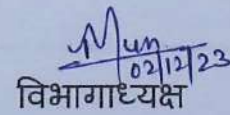 02/12/23
विभागाध्यक्ष